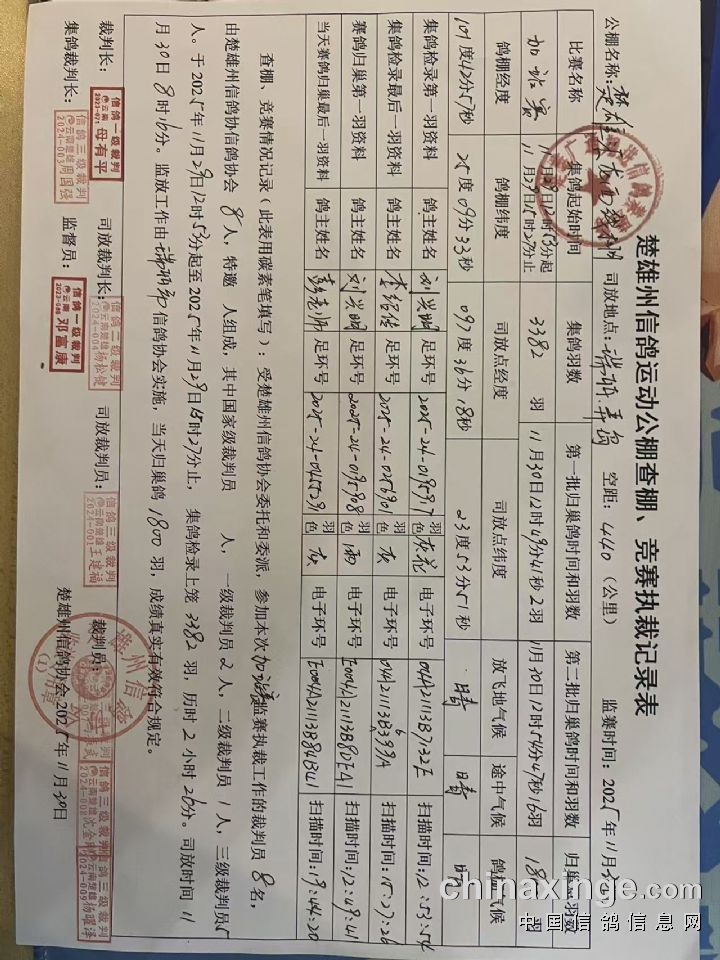 楚雄州信鸽运动公棚查棚、竞赛执裁记录表
公棚名称: 司放地点: 空距:440(公里) 监赛时间:2025年11月30
比赛名称 集鸽起始时间 集鸽羽数 第一批归巢鸽时间和羽数 第二批归巢鸽时间和羽数 归巢鸽羽数
加站赛 11月29日12时53分起 11月29日15时27分止 3382 羽 11月30日12时49分41秒2羽 11月30日12时54分47秒16羽 羽
鸽棚经度 鸽棚纬度 司放点经度 司放点纬度 放飞地气候 途中气候 鸽棚气候
101度42分57秒 25度09分33秒 097度36分18秒 23度53分51秒 晴 晴 晴
集鸽检录第一羽资料 鸽主姓名 刘兴明 足环号 羽色 灰花 电子环号 扫描时间:12:53:54
集鸽检录最后一羽资料 鸽主姓名 李绍传 足环号 2025-24-0256901 羽色 灰 电子环号 扫描时间:15:27:26
赛鸽归巢第一羽资料 鸽主姓名 刘兴明 足环号 2025-24-0195908 羽色 雨 电子环号 扫描时间:12:49:41
当天赛鸽归巢最后一羽资料 鸽主姓名 足环号 2025-24-0455291 羽色 灰 电子环号 扫描时间:19:44:20
查棚、竞赛情况记录(此表用碳素笔填写):受楚雄州信鸽协会委托和委派,参加本次加站赛监赛执裁工作的裁判员8名,
由楚雄州信鸽协信鸽协会8人,特邀 人组成,其中国家级裁判员 人,一级裁判员2人,二级裁判员1人,三级裁判员5
人。于2025年11月29日12时53分起至2025年11月29日15时27分止,集鸽检录上笼3382羽,历时2小时26分。司放时间11
月30日8时16分。监放工作由 信鸽协会实施,当天归巢鸽1800羽,成绩真实有效符合规定。
裁判长: 信鸽一级裁判 云南 母有平 司放裁判长: 信鸽三级裁判 云南楚雄 杨松健 2024-004 司放裁判员: 信鸽三级裁判 云南楚雄 王建福 2024-001 裁判员:
集鸽裁判长: 信鸽三级裁判 云南楚雄 周国强 2024-003 监督员: 信鸽一级裁判 云南 邓富康 信鸽三级裁判 2024-008 信鸽三级裁判 云南楚雄 杨曜泽 2024-009
楚雄州信鸽协会2025年11月30日
chinaxinge.com
中国信鸽信息网